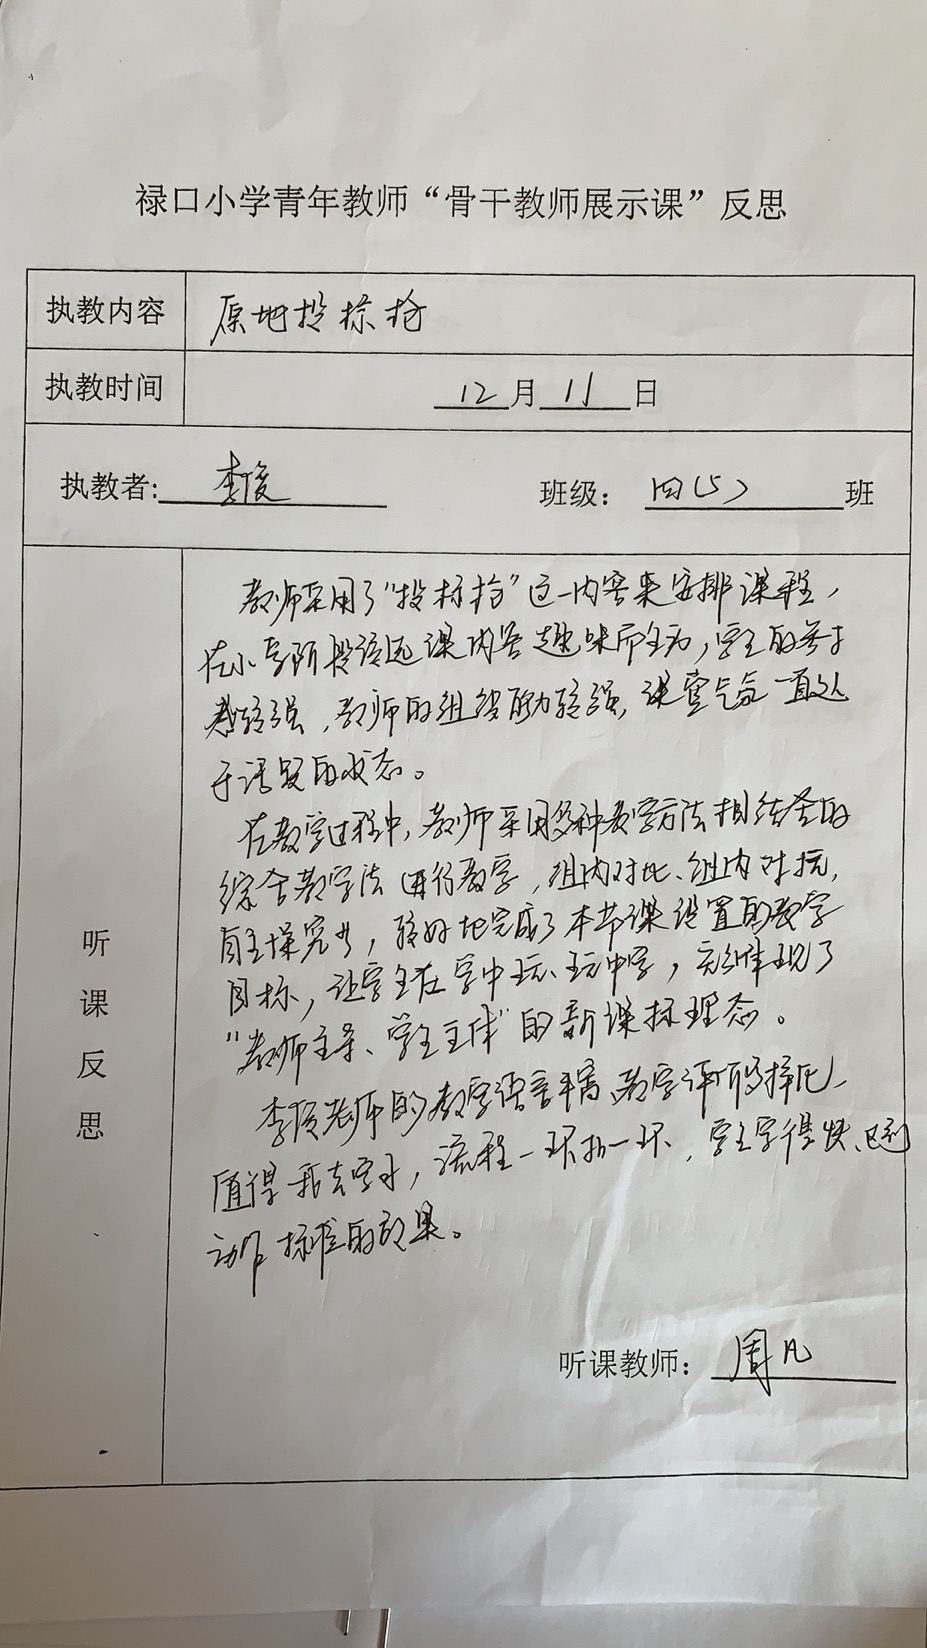 禄口小学青年教师“骨干教师展示课”反思
执教内容 原地投标枪
执教时间 12月11日
执教者: 李俊 班级: 四(5)班
听课反思
教师采用了“投标枪”这一内容来安排课程,
在小学阶段该选课内容趣味而生动,学生的参与
感较强,教师的组织能力较强,课堂气氛一直处
于活跃的状态。
在教学过程中,教师采用多种教学方法相结合的
综合教学法进行教学,组内对比、组内对抗,
自主探究等,较好地完成了本节课设置的教学
目标,让学生在学中玩、玩中学,充分体现了
“教师主导、学生主体”的新课标理念。
李俊老师的教学语言丰富、教学评价
值得我去学习,流程一环扣一环,学生学得快、达到
动作标准的效果。
听课教师: 周凡